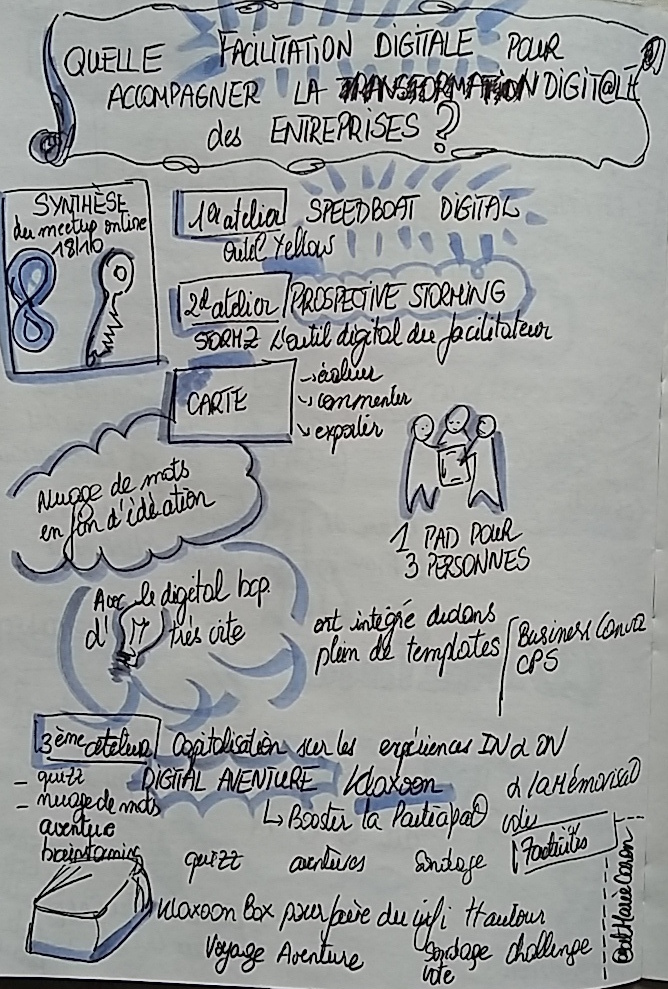 QUELLE FACILITATION DIGITALE POUR
ACCOMPAGNER LA TRANSFORMATION DIGIT@LE
des ENTREPRISES ?
SYNTHÈSE
du meetup online
18/10
1er atelier SPEEDBOAT DIGITAL
outil Yellow
2d atelier PROSPECTIVE STORMING
STORMZ L'outil digital du facilitateur
CARTE
→ évaluer
→ commenter
→ exporter
Nuage de mots
en fin d'idéation
1 PAD POUR
3 PERSONNES
Avec le digital bcp
d' très vite
est intégré dedans
plein de templates
Business Canva
CPS
3ème atelier Capitalisation sur les expériences IN & ON
DIGITAL AVENTURE Klaxoon
- quizz
- nuage de mots
aventure
brainstorming
↳ Booster la Participat°
& la Mémorisat°
quizz aventures Sondage
Klaxoon Box pour faire du wifi
Voyage Aventure Sondage challenge
vote